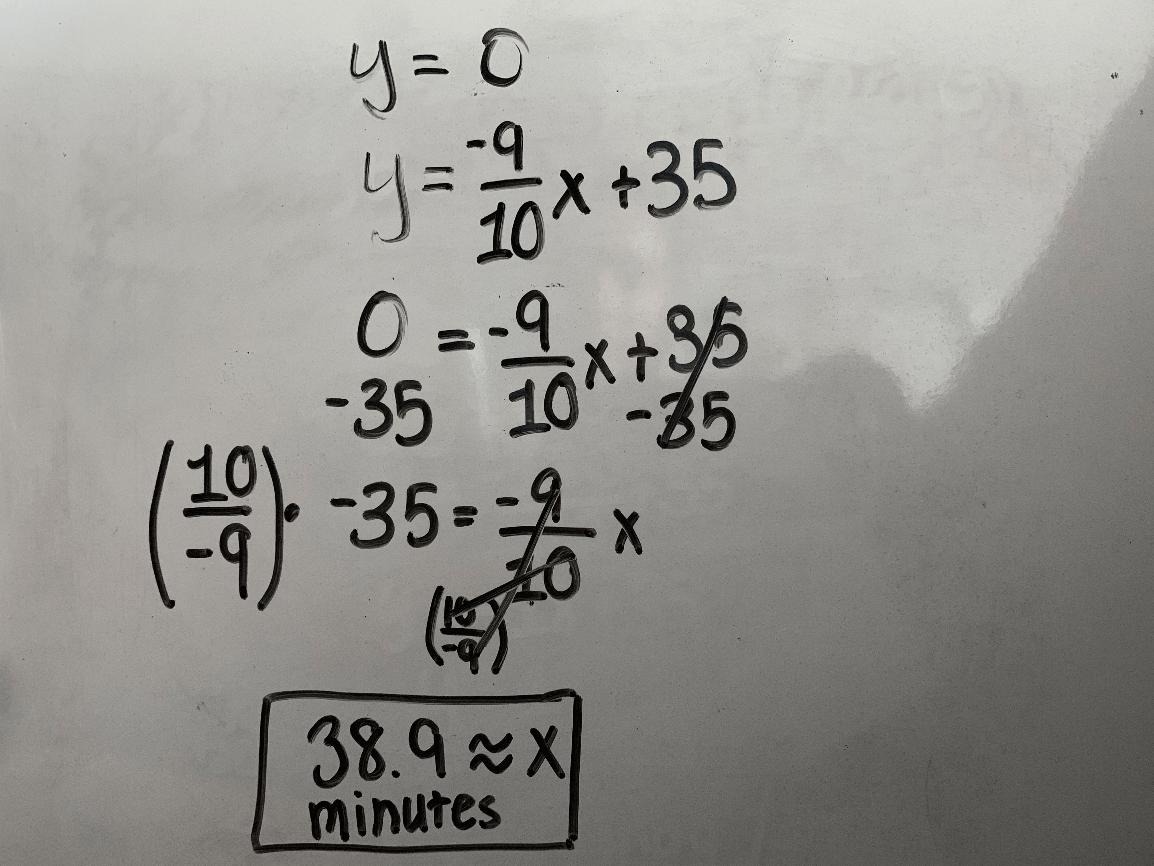 y = 0
y = -9/10 x + 35
0 = -9/10 x + 35
-35 -35
(10/-9) · -35 = -9/10 x
(10/-9)
38.9 ≈ x
minutes